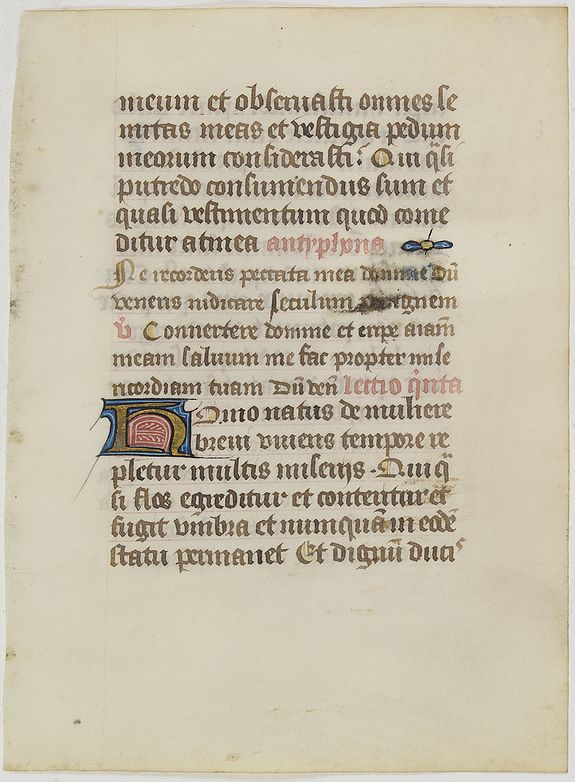 meum et obseruasti omnes se
mitas meas et vestigia pedum
meorum considerasti: Qui q̄si
putredo consumendus sum et
quasi vestimentum quod come
ditur a tinea antyphona
Ne recorderis peccata mea domine Dū
veneris iudicare seculum per ignem
v̄ Conuertere domine et eripe aīam
meam saluum me fac propter mise
ricordiam tuam Dū ven̄ lectio q̄nta
Homo natus de muliere
breui viuens tempore re
pletur multis miserijs. Qui q̄
si flos egreditur et conteritur et
fugit vmbra et numquam in eodē
statu permanet Et dignū duci